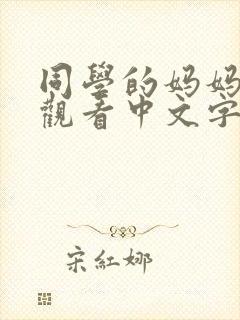 同學的妈妈
觀看中文字
宋紅娜